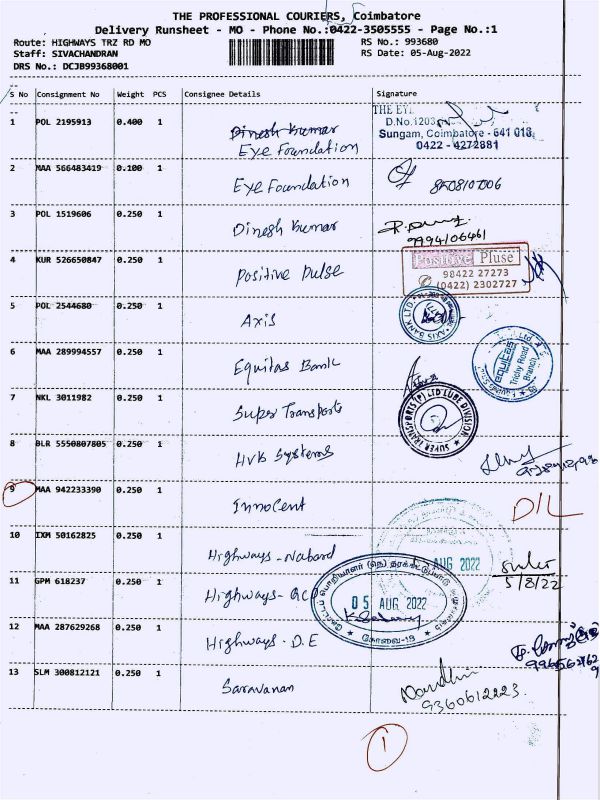 THE PROFESSIONAL COURIERS, Coimbatore
Delivery Runsheet - MO - Phone No.:0422-3505555 - Page No.:1
Route: HIGHWAYS TRZ RD MO
RS No.: 993680
Staff: SIVACHANDRAN
RS Date: 05-Aug-2022
DRS No.: DCJB99368001
S No Consignment No Weight PCS Consignee Details Signature
1 POL 2195913 0.400 1 Dinesh Kumar
Eye Foundation
THE EYE
D.No.1203
Sungam, Coimbatore - 641 018.
0422 - 4272881
2 MAA 566483419 0.100 1 Eye Foundation
3 POL 1519606 0.250 1 Dinesh Kumar
9994106461
4 KUR 526650847 0.250 1 Positive Pulse
Positive Pluse
98422 27273
(0422) 2302727
5 POL 2544680 0.250 1 Axis
AXIS BANK LTD
6 MAA 289994557 0.250 1 Equitas Bank
equitas
Trichy Road
Branch
7 NKL 3011982 0.250 1 Super Transports
SUPER TRANSPORTS (P) LTD LUBE DIVISION
8 BLR 5550807805 0.250 1 HVB Systems
9 MAA 942233390 0.250 1 Innocent
D/L
10 IXM 50162825 0.250 1 Highways - Nabard
AUG 2022
5/8/22
11 GPM 618237 0.250 1 Highways - QC
05 AUG 2022
கோவை-18
12 MAA 287629268 0.250 1 Highways - D.E
13 SLM 300812121 0.250 1 Saravanan
Nandhini
9360612223
1